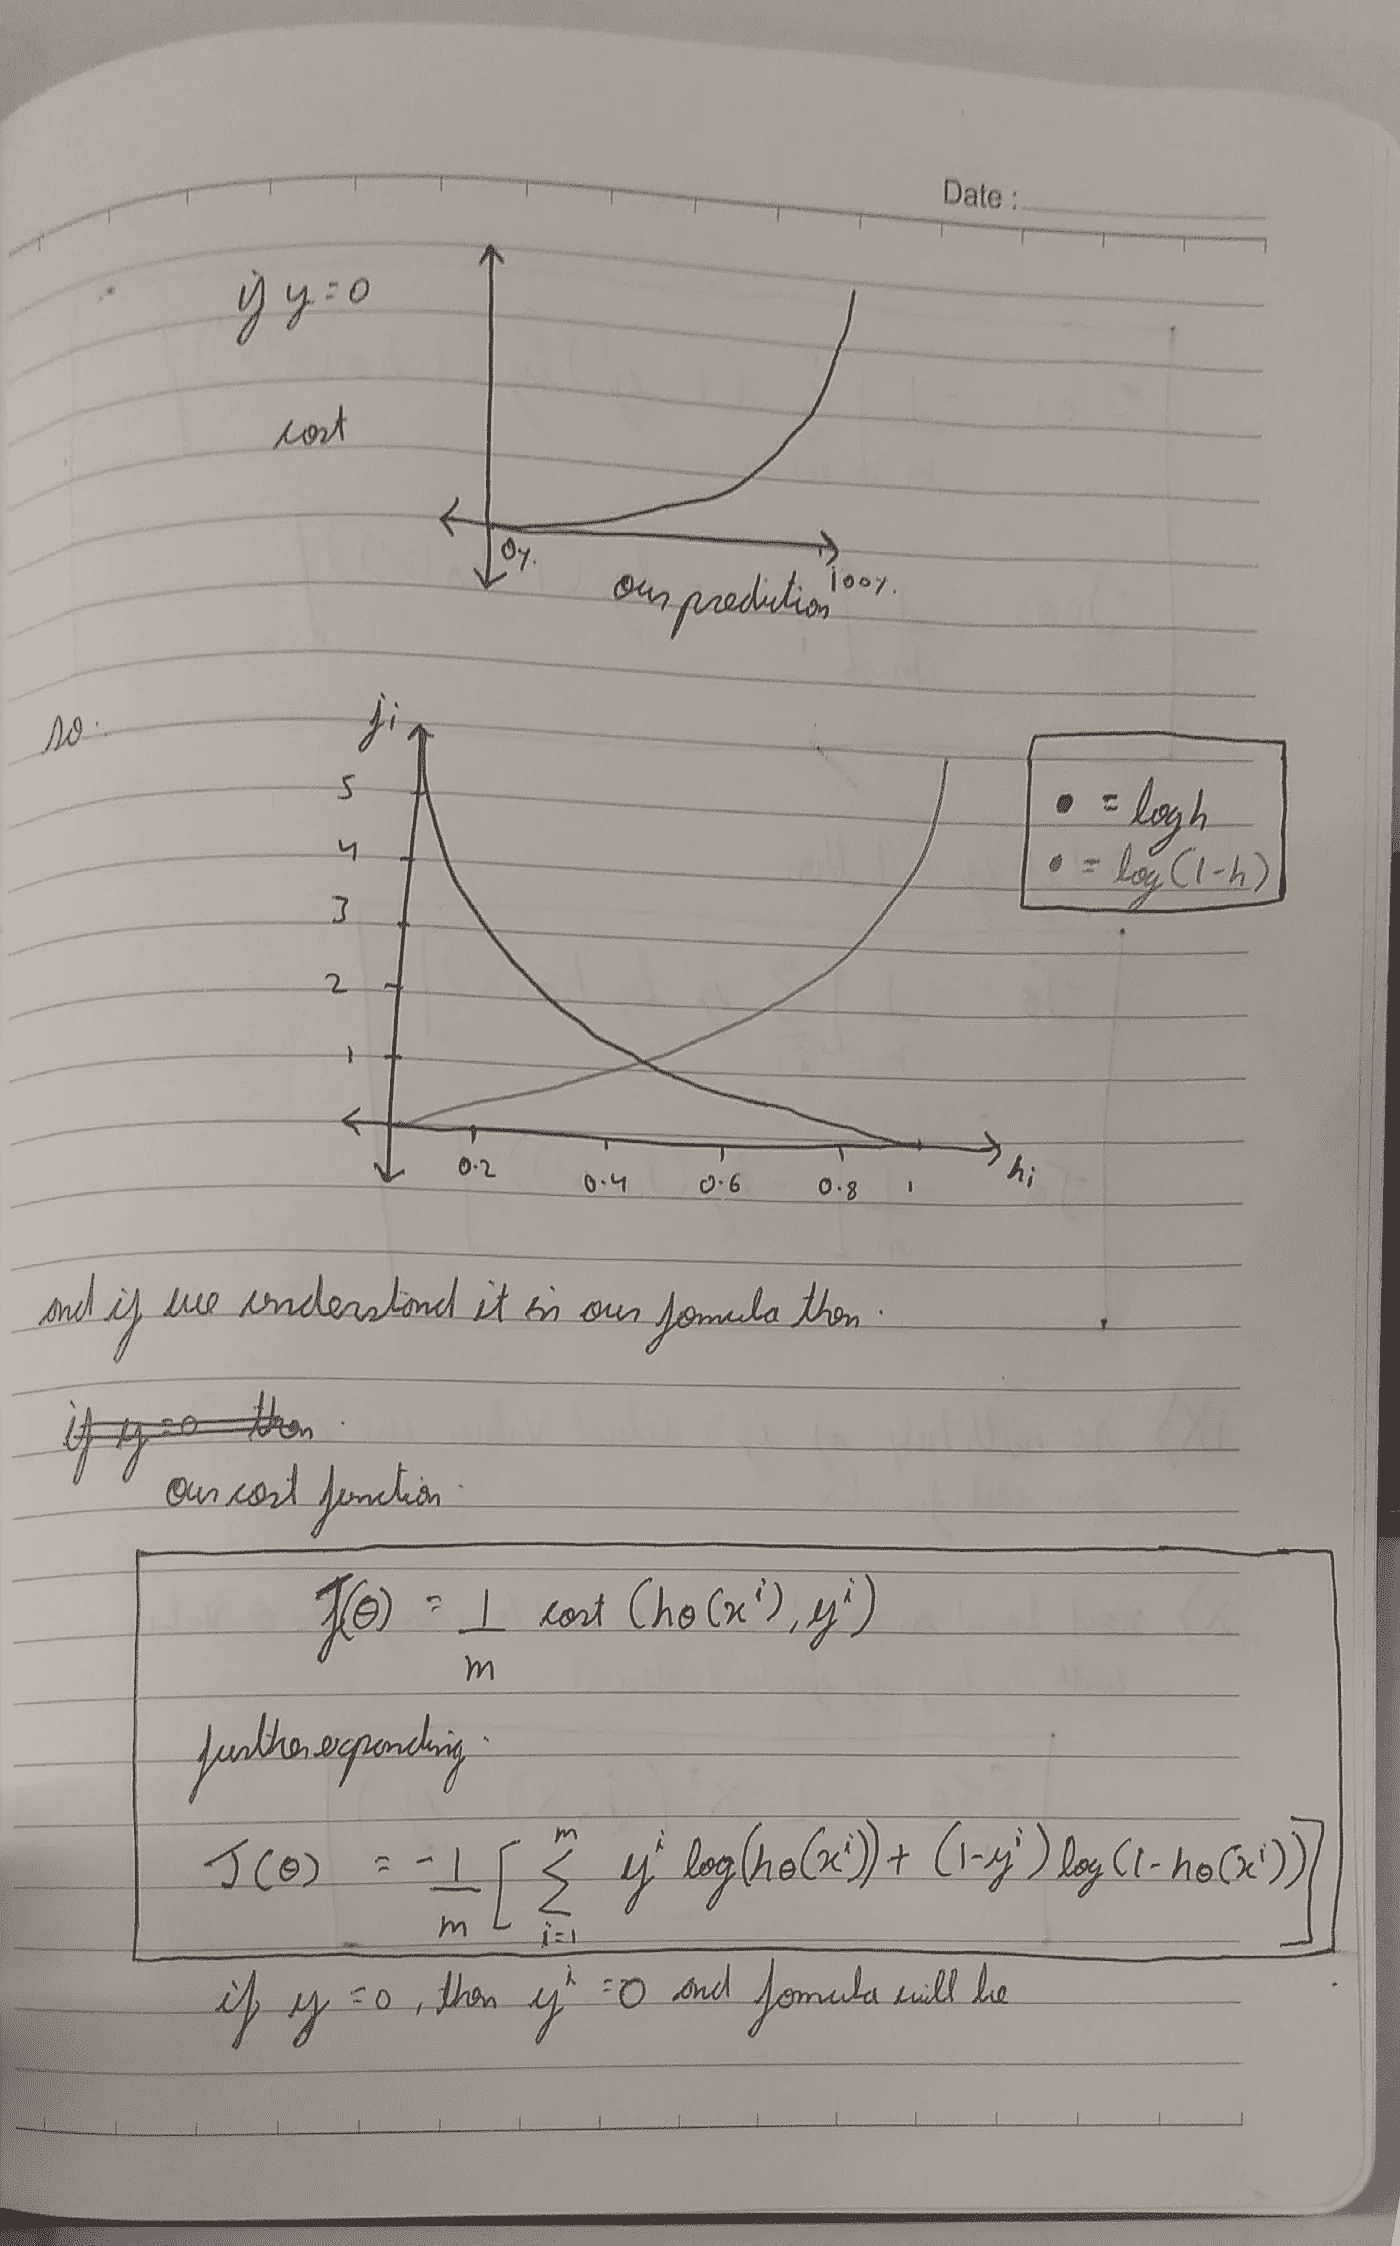 Date :
if y = 0
cost
0%.
100%.
our prediction
so.
ji
5
4
3
2
1
0.2
0.4
0.6
0.8
1
hi
• = log h
• = log (1-h)
and if we understand it in our fomula then.
if y=0 then.
our cost function.
J(θ) = 1/m cost (hθ(xⁱ), yⁱ)
further expanding.
J(θ) = -1/m [ Σ_{i=1}^{m} yⁱ log(hθ(xⁱ)) + (1-yⁱ) log (1-hθ(xⁱ)) ]
if y = 0, then yⁱ = 0 and fomula will be